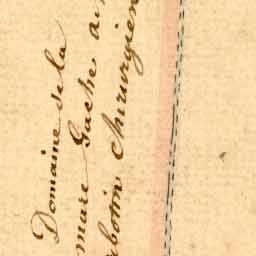 Domaine de la
mare Gache au
chirurgien